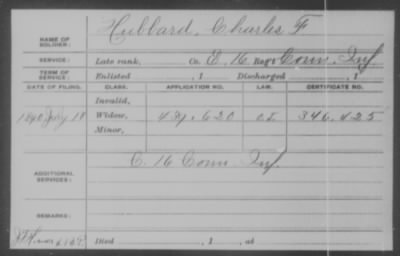 NAME OF SOLDIER: Hubbard, Charles F
SERVICE: Late rank, Co. E. 16 Reg't Conn. Inf.
TERM OF SERVICE: Enlisted , 1 Discharged , 1
DATE OF FILING. CLASS. APPLICATION NO. LAW. CERTIFICATE NO.
Invalid,
1890 July 18 Widow, 439.620 346.425
Minor,
ADDITIONAL SERVICES: C. 16 Conn. Inf.
REMARKS:
Died , 1 , at